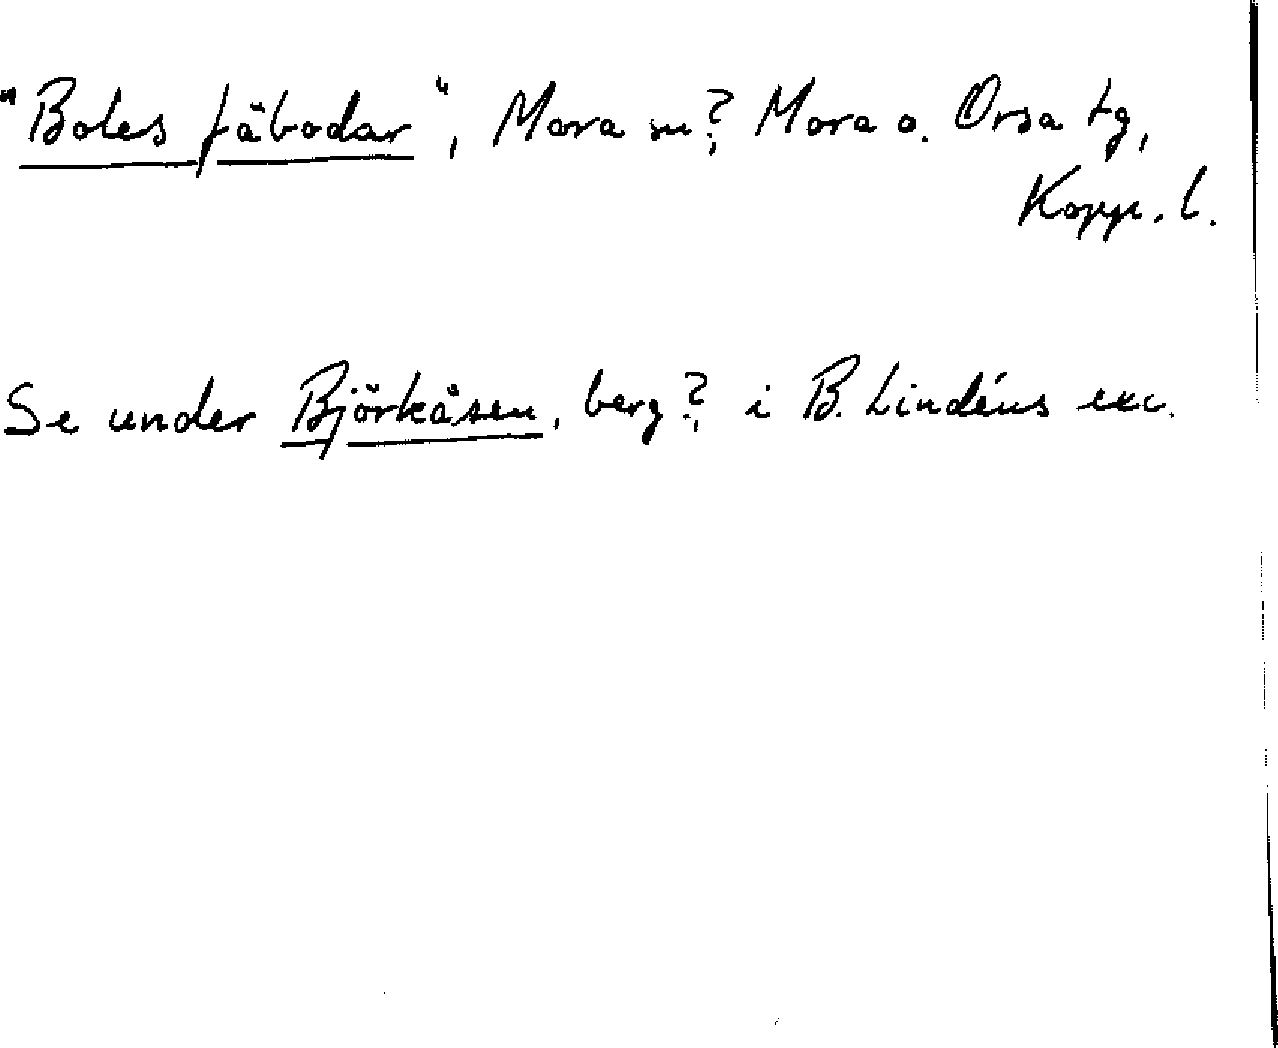 "Boles fäbodar", Mora sn? Mora o. Orsa tg,
Kopp. l.
Se under Björkåsen, berg? i B. Lindéns exc.